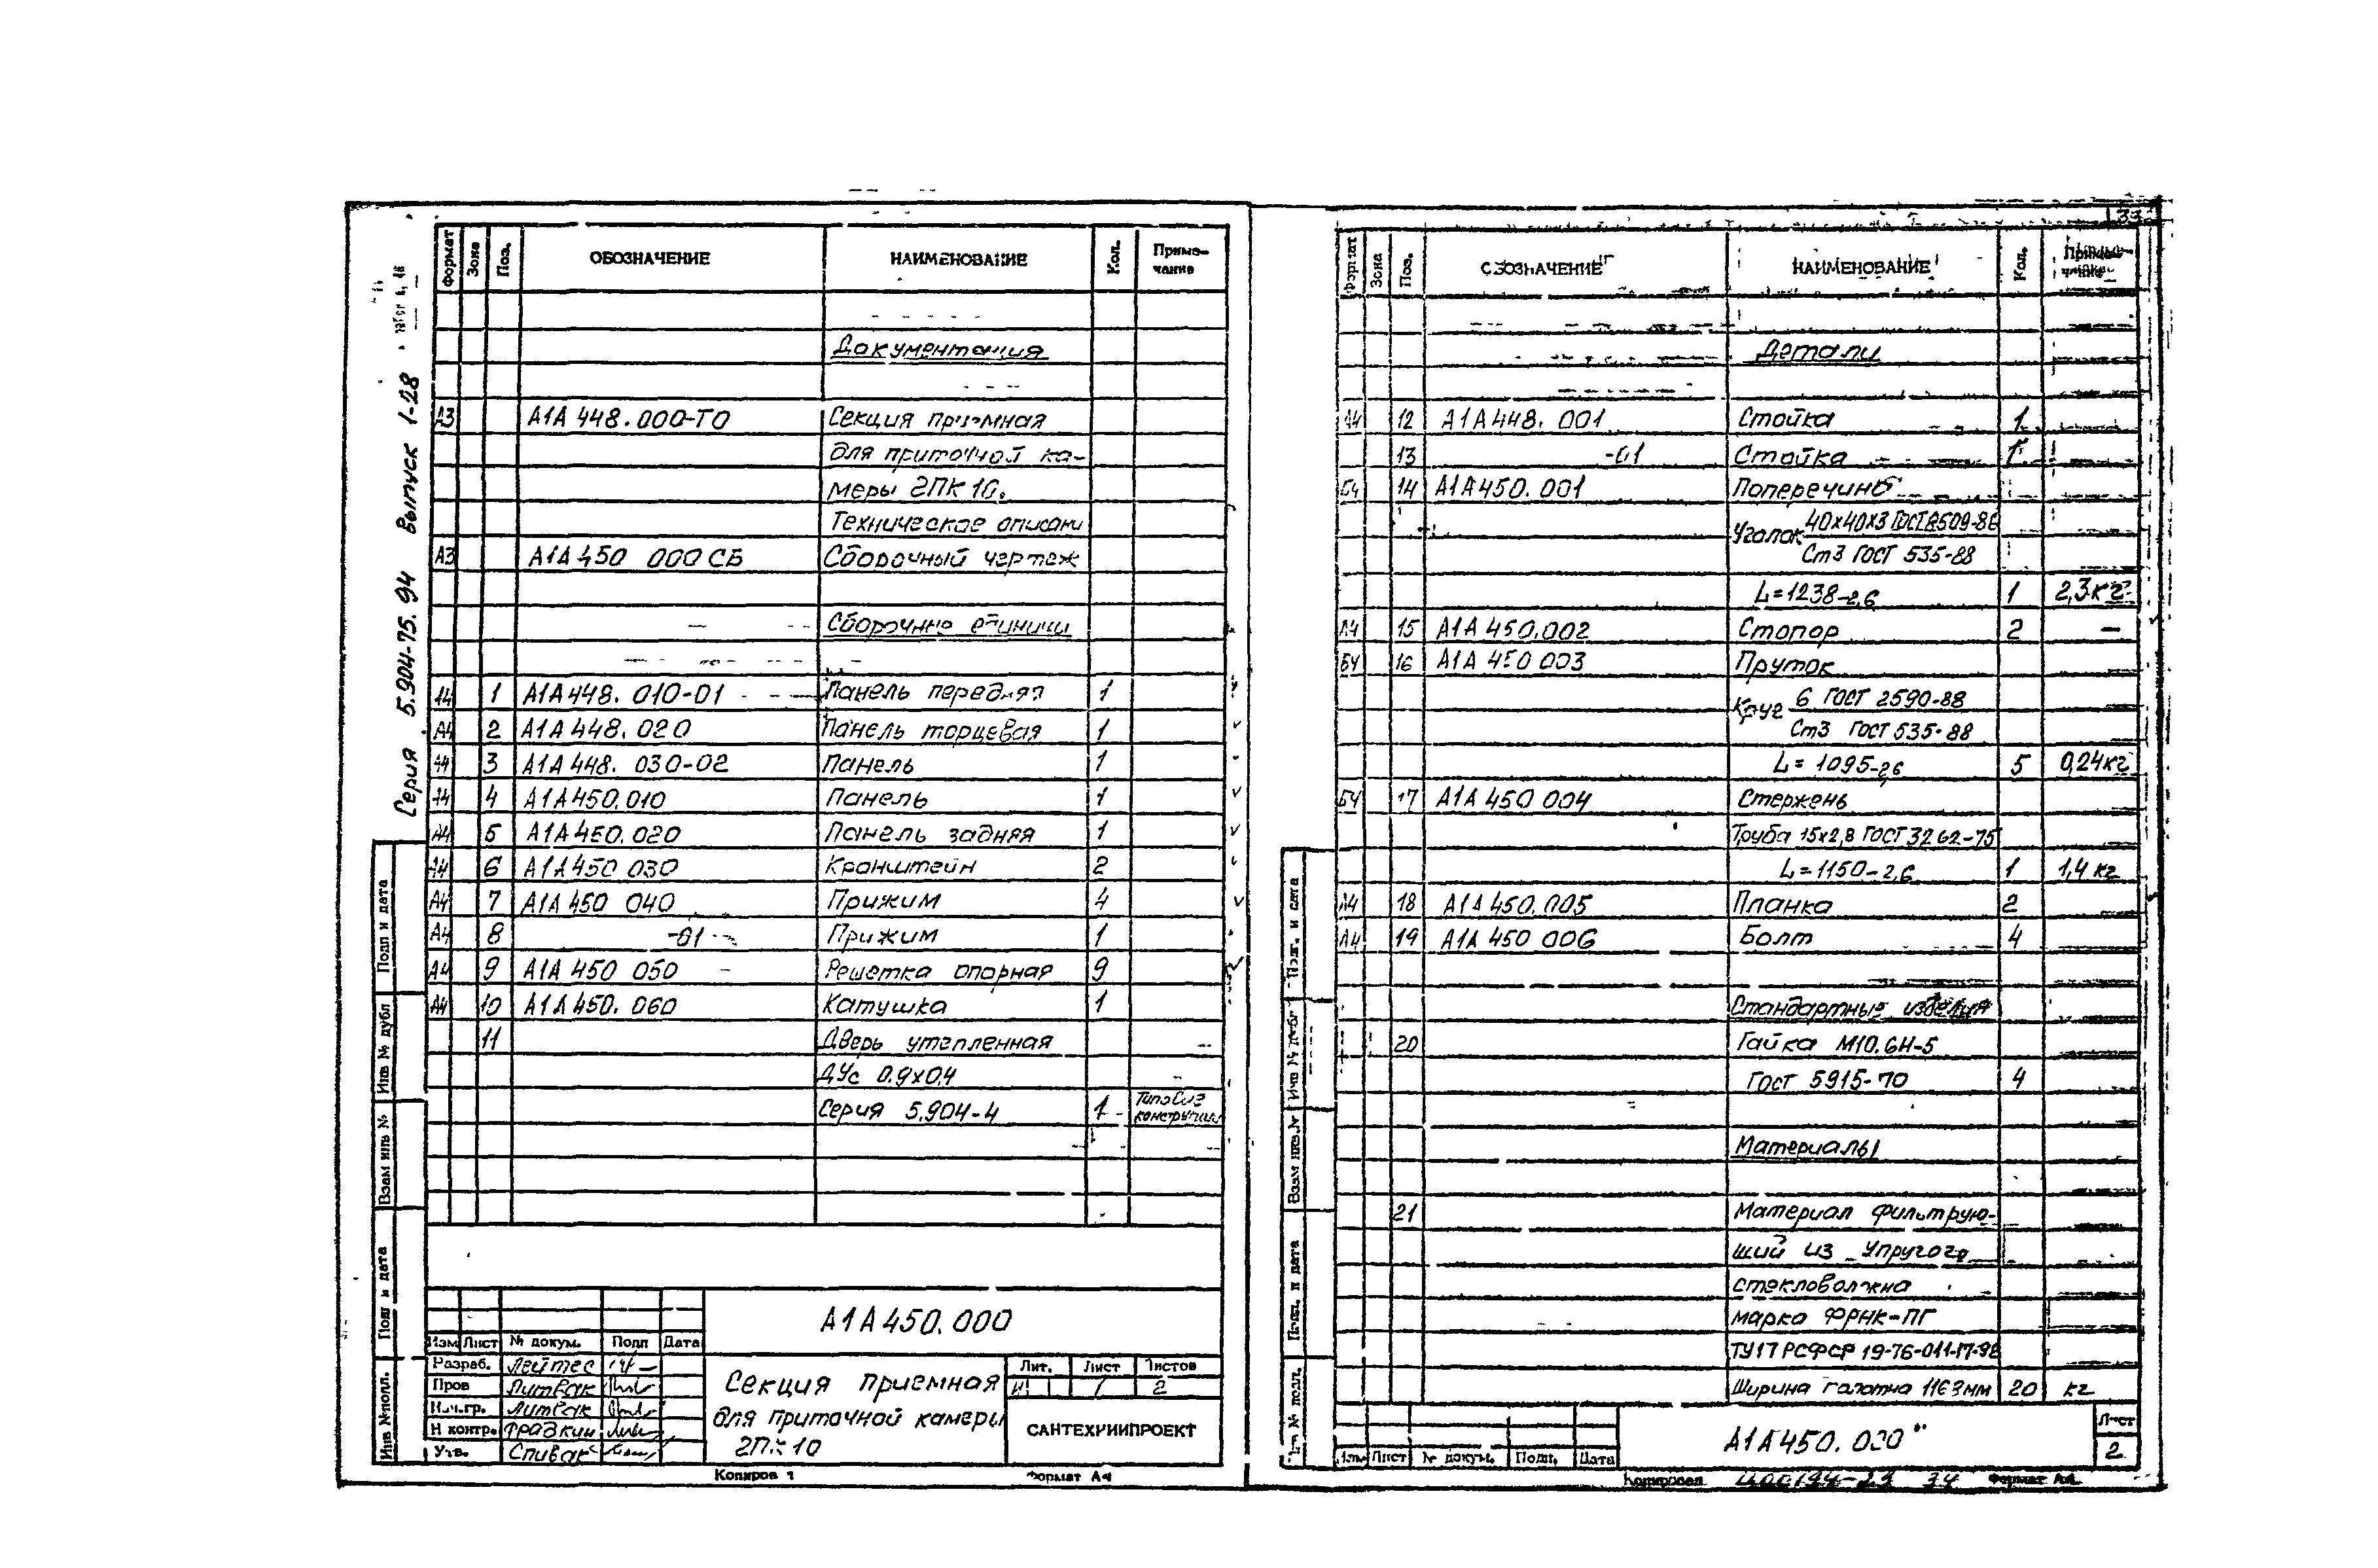 Серия 5.904-75.94 Выпуск 1-28
Формат Зона Поз. ОБОЗНАЧЕНИЕ НАИМЕНОВАНИЕ Кол. Приме-
чание
Документация
А3 А1А 448.000-ТО Секция приемная
для приточной ка-
меры 2ПК 10.
Техническое описани
А3 А1А 450 000 СБ Сборочный чертеж
Сборочные единицы
А4 1 А1А 448. 010-01 Панель передняя 1
А4 2 А1А 448. 020 Панель торцевая 1
А4 3 А1А 448. 030-02 Панель 1
А4 4 А1А 450. 010 Панель 1
А4 5 А1А 450. 020 Панель задняя 1
А4 6 А1А 450 030 Кронштейн 2
А4 7 А1А 450 040 Прижим 4
А4 8 -01 Прижим 1
А4 9 А1А 450 050 Решетка опорная 9
А4 10 А1А 450. 060 Катушка 1
11 Дверь утепленная
ДУс 0.9х0,4
Серия 5.904-4 1 Типовые
конструкции
Подп и дата
Инв № дубл
Взам инв №
Подп и дата
Инв № подл.
А1А 450. 000
Изм Лист № докум. Подп Дата
Разраб. Лейтес
Пров Литвак
Нач.гр. Литвак
Н контр. Фрадкин
Утв. Спивак
Секция приемная
для приточной камеры
2ПК 10
Лит. Лист Листов
И 1 2
САНТЕХНИИПРОЕКТ
Копиров Формат А4
Формат Зона Поз. ОБОЗНАЧЕНИЕ НАИМЕНОВАНИЕ Кол. Приме-
чание
Детали
А4 12 А1А 448. 001 Стойка 1
13 -01 Стойка 1
БЧ 14 А1А 450. 001 Поперечина
Уголок 40х40х3 ГОСТ 8509-86
Ст3 ГОСТ 535-88
L=1238-2,6 1 2,3кг
А4 15 А1А 450.002 Стопор 2 —
БЧ 16 А1А 450 003 Пруток
Круг 6 ГОСТ 2590-88
Ст3 ГОСТ 535-88
L= 1095-2,6 5 0,24кг
БЧ 17 А1А 450 004 Стержень
Труба 15х2,8 ГОСТ 3262-75
L=1150-2,6 1 1,4 кг
А4 18 А1А 450.005 Планка 2
А4 19 А1А 450 006 Болт 4
Стандартные изделия
20 Гайка М10.6Н-5
Гост 5915-70 4
Материалы
21 Материал фильтрую-
щий из упругого
стекловолокна
марка ФРНК-ПГ
ТУ17 РСФСР 19-76-011-17-
Ширина полотна 1163мм 20 кг
Подп. и дата
Инв № дубл
Взам инв.№
Подп. и дата
Инв № подл.
А1А 450. 000
Лист
2
Изм Лист № докум. Подп. Дата
Копировал Формат А4